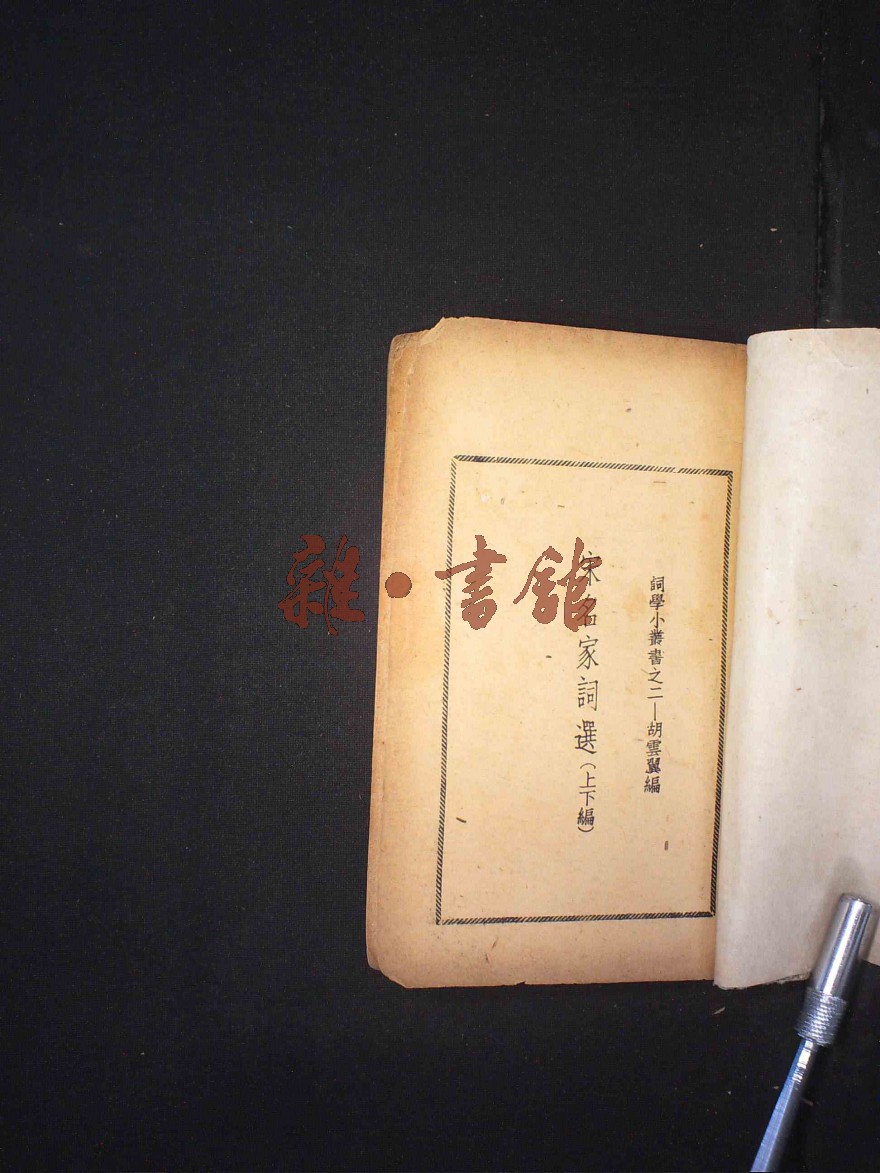 詞學小叢書之二—胡雲翼編
宋名家詞選(上下編)
雜·書館